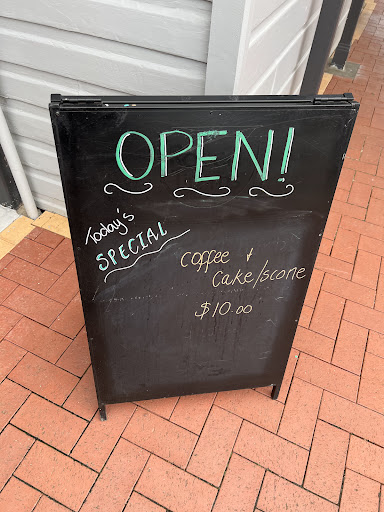 OPEN!
Today's
SPECIAL
coffee +
cake/scone
$10.00